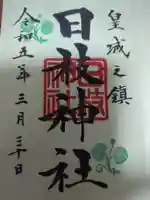 皇城之鎮
日枝神社
令和五年三月三十日